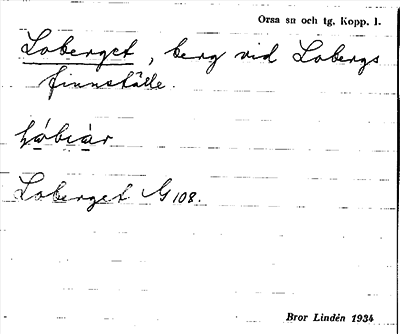 Orsa sn och tg. Kopp. l.
Loberget, berg vid Lobergs
finnställe.
Loberget G 108.
Bror Lindén 1934